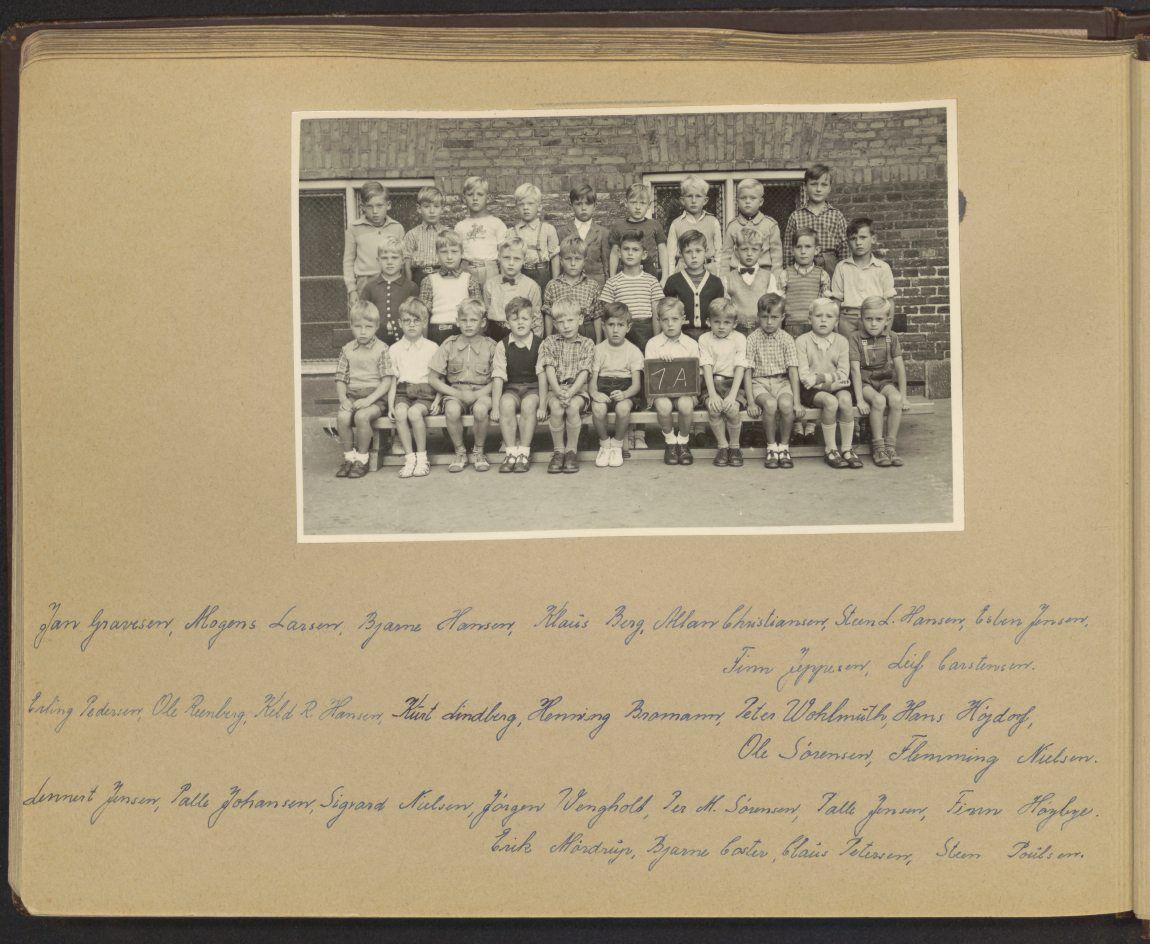 1A
Jan Gravesen, Mogens Larsen, Bjarne Hansen, Klaus Berg, Allan Christiansen, Steen L. Hansen, Esben Jensen,
Finn Jeppesen, Leif Carstensen.
Erling Pedersen, Ole Reenberg, Keld R Hansen, Kurt Lindberg, Henning Bromann, Peter Wohlmuth, Hans Höjdorf,
Ole Sörensen, Flemming Nielsen.
Lennert Jensen, Palle Johansen, Sigvard Nielsen, Jörgen Vengholt, Per M. Sörensen, Palle Jensen, Finn Høybye.
Erik Mördrup, Bjarne Coster, Claus Petersen, Steen Poulsen.